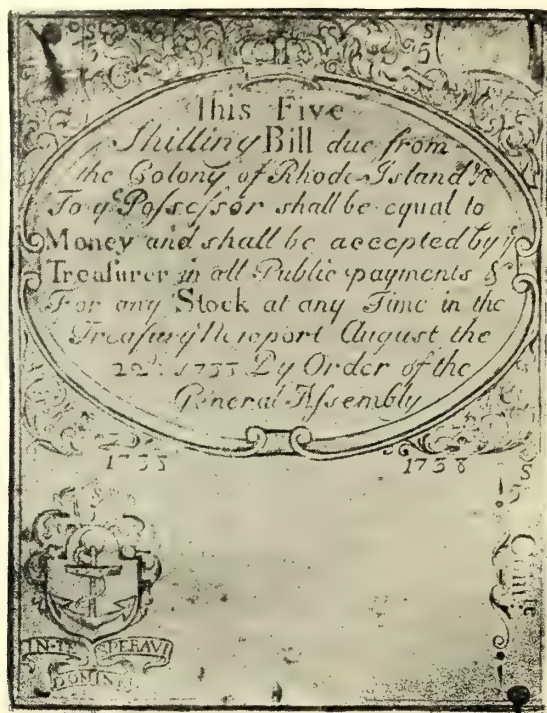 S
5
S
5
This Five
Shilling Bill due from
the Colony of Rhode-Island &c
To yͤ Poſseſsor shall be equal to
Money and shall be accepted by yͤ
Treaſurer in all Public payments &
For any Stock at any Time in the
Treaſury Newport August the
22ᵈ: 1733 By Order of the
General Aſsembly
1733
1738
S
5
IN·TE SPERAVI
DOMINE